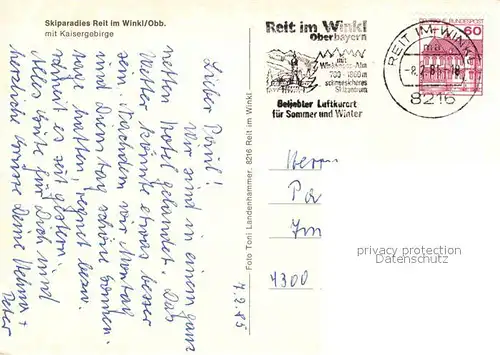 Skiparadies Reit im Winkl/Obb.
mit Kaisergebirge
Lieber Pauli!
Wir sind in einem ganz
netten Hotel gelandet. Das
Wetter könnte etwas besser
sein. Nachdem wir Montag
und Dienstag schöne Sonnen-
tage hatten, regnet bezw.
schneit es seit gestern.
Alles Gute für Dich und
herzliche Grüsse Deine Helma +
Peter
Foto Toni Landenhammer, 8216 Reit im Winkl
7.2.85
Reit im Winkl
Oberbayern
mit
Winklmoos-Alm
700-1800m
schneesicheres
Skizentrum
Beliebter Luftkurort
für Sommer und Winter
REIT IM WINKL
ma
-8.2.85-18
8216
DEUTSCHE BUNDESPOST
60
Herrn
4300
privacy protection
Datenschutz